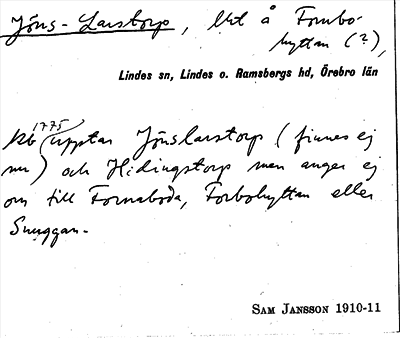 Jöns-Larstorp, Utl å Fornbo-
hyttan (?),
Lindes sn, Lindes o. Ramsbergs hd, Örebro län
1775
Kb upptar Jönslarstorp (finnes ej
nu) och Hidingstorp men anger ej
om till Fornaboda, Forbohyttan eller
Snuggan.
SAM JANSSON 1910-11